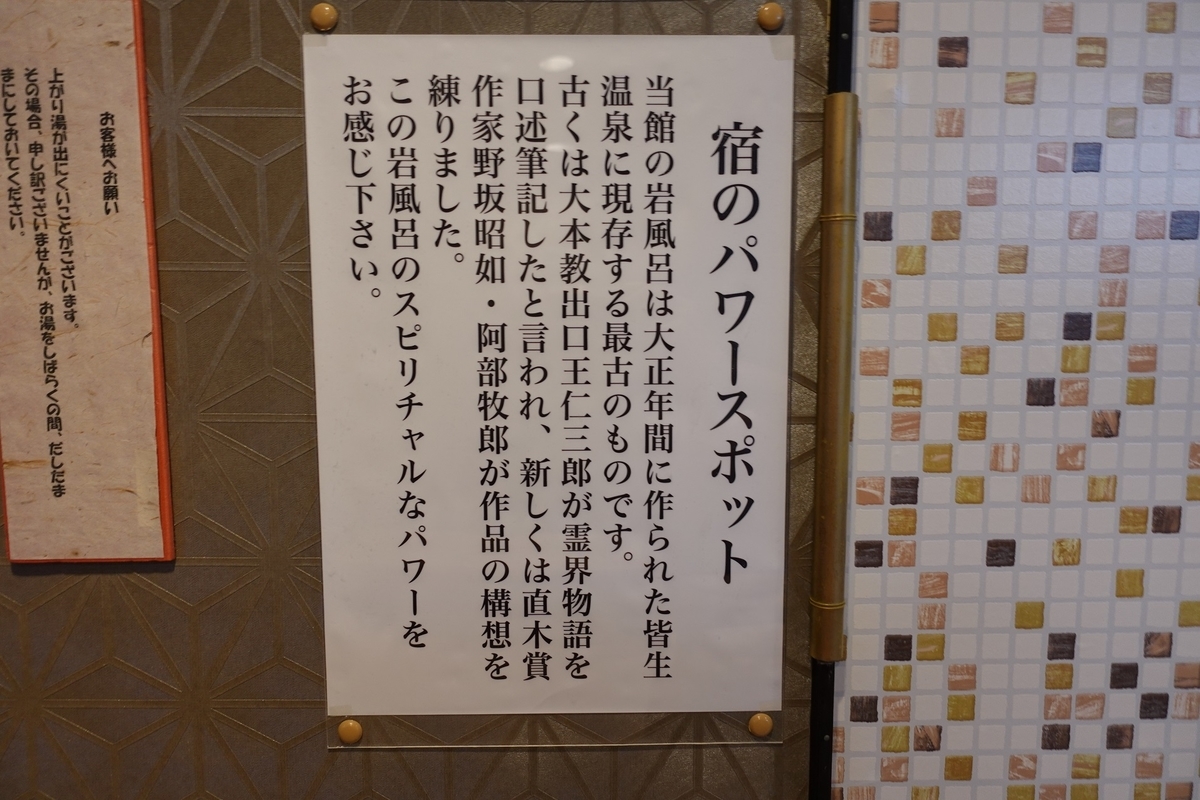 宿のパワースポット
当館の岩風呂は大正年間に作られた皆生
温泉に現存する最古のものです。
古くは大本教出口王仁三郎が霊界物語を
口述筆記したと言われ、新しくは直木賞
作家野坂昭如・阿部牧郎が作品の構想を
練りました。
この岩風呂のスピリチャルなパワーを
お感じ下さい。
お客様へお願い
上がり湯が出にくいことがございます。
その場合、申し訳ございませんが、お湯をしばらくの間、だしたま
まにしておいてください。